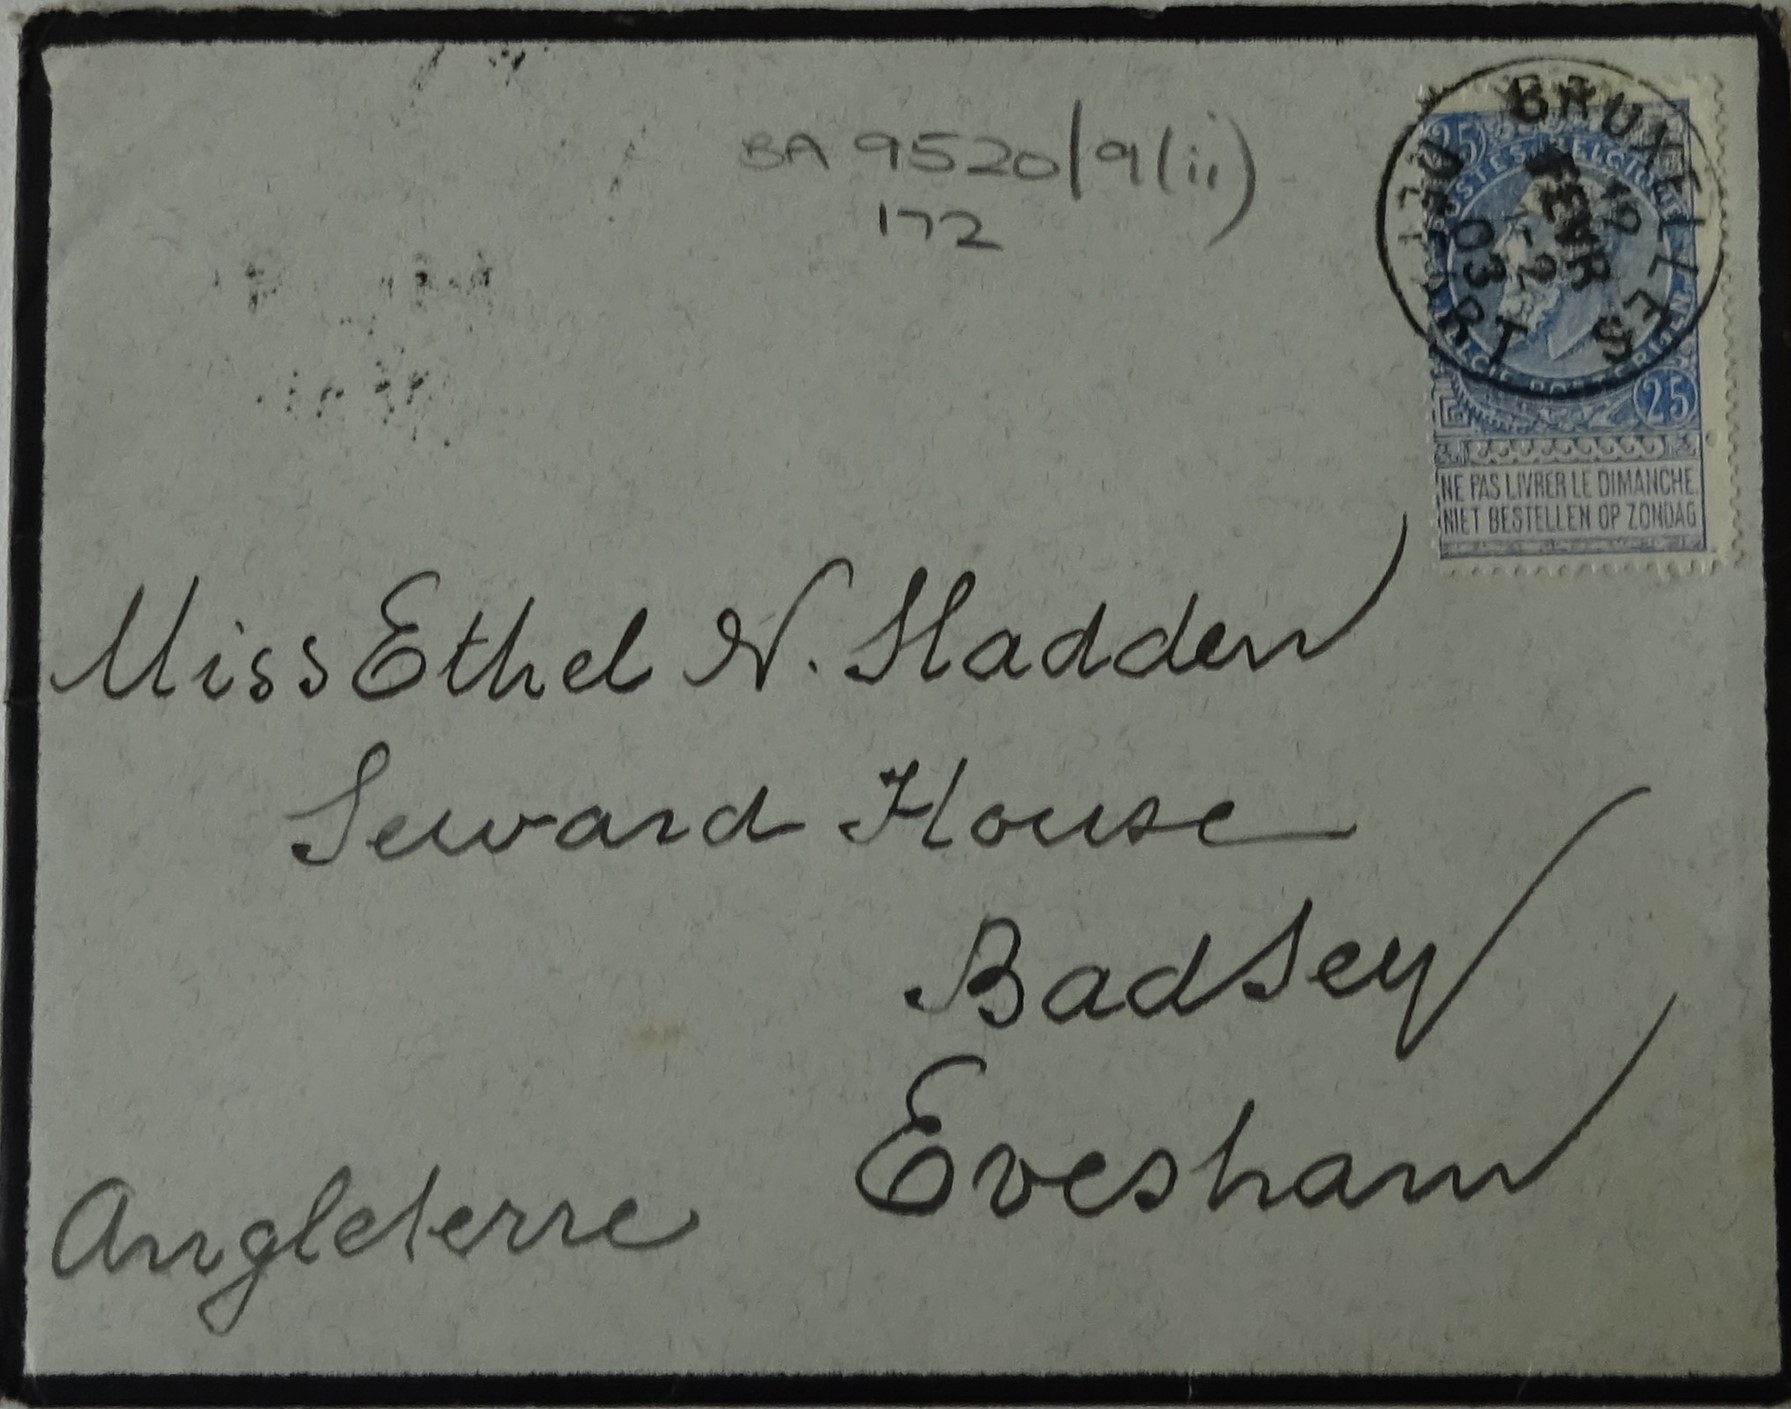 BA 9520/9(ii)
172
BRUXELLES
12
FEVR
1-2
03
DÉPART
25
POSTES BELGIQUE
25
NE PAS LIVRER LE DIMANCHE
NIET BESTELLEN OP ZONDAG
Miss Ethel N. Sladden
Seward House
Badsey
Evesham
Angleterre